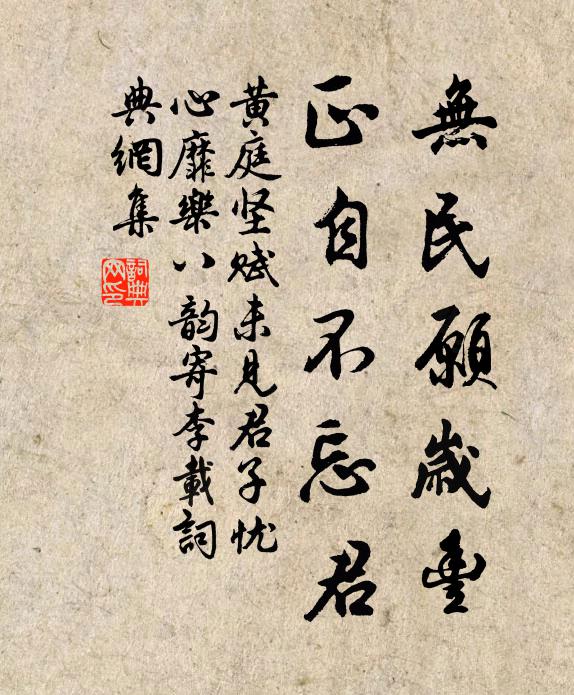 無民願歲豐
正自不忘君
黄庭坚赋未見君子忧
心靡樂八韵寄李載詞
典網集
詞典
网印